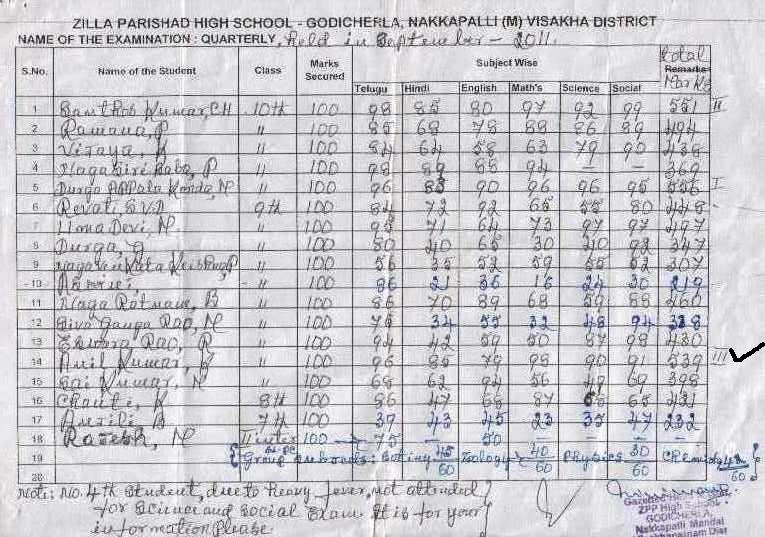 ZILLA PARISHAD HIGH SCHOOL - GODICHERLA, NAKKAPALLI (M) VISAKHA DISTRICT
NAME OF THE EXAMINATION : QUARTERLY, held in September - 2011.
S.No. Name of the Student Class Marks Secured Subject Wise Total Remarks Marks
Telugu Hindi English Math's Science Social
1 Santhosh Kumar, CH 10th 100 98 85 80 97 92 99 551 II
2 Ramana, P 〃 100 85 68 78 88 86 89 494
3 Vijaya, 〃 100 84 64 58 63 79 90 438
4 Nagasiri Babu, P 〃 100 98 89 88 94 — — 369
5 Durga Appala Konda, N 〃 100 96 83 90 96 96 95 556 I
6 Revati 9th 100 84 72 92 65 55 80 448
7 Uma Devi, N. 〃 100 95 71 64 73 97 97 497
8 Durga, G 〃 100 80 40 65 30 40 92 347
9 〃 100 56 35 52 59 55 52 307
10 〃 100 86 21 36 16 24 30 219
11 Naga Ratnam, B 〃 100 86 70 89 68 59 88 460
12 Siva Ganga Rao, N 〃 100 75 34 55 32 48 94 338
13 Eswara Rao, R 〃 100 94 42 59 50 87 98 430
14 Anil Kumar, 〃 100 96 85 79 98 90 91 539 III
15 Sai Kumar, N 〃 100 68 62 94 56 49 69 398
16 8th 100 86 47 66 87 65 65 421
17 7th 100 39 43 45 23 35 47 232
18 Rajesh, N II inter 100 → 75 — 50 — — —
19 { Group subjects: Botiny 45/60 Zoology 40/60 Physics 30/60 }
20
Note: No. 4th student, due to heavy fever, not attended
for science and social Exam. It is for your
information please
ZPP High School
GODICHERLA,
Nakkapalli Mandal